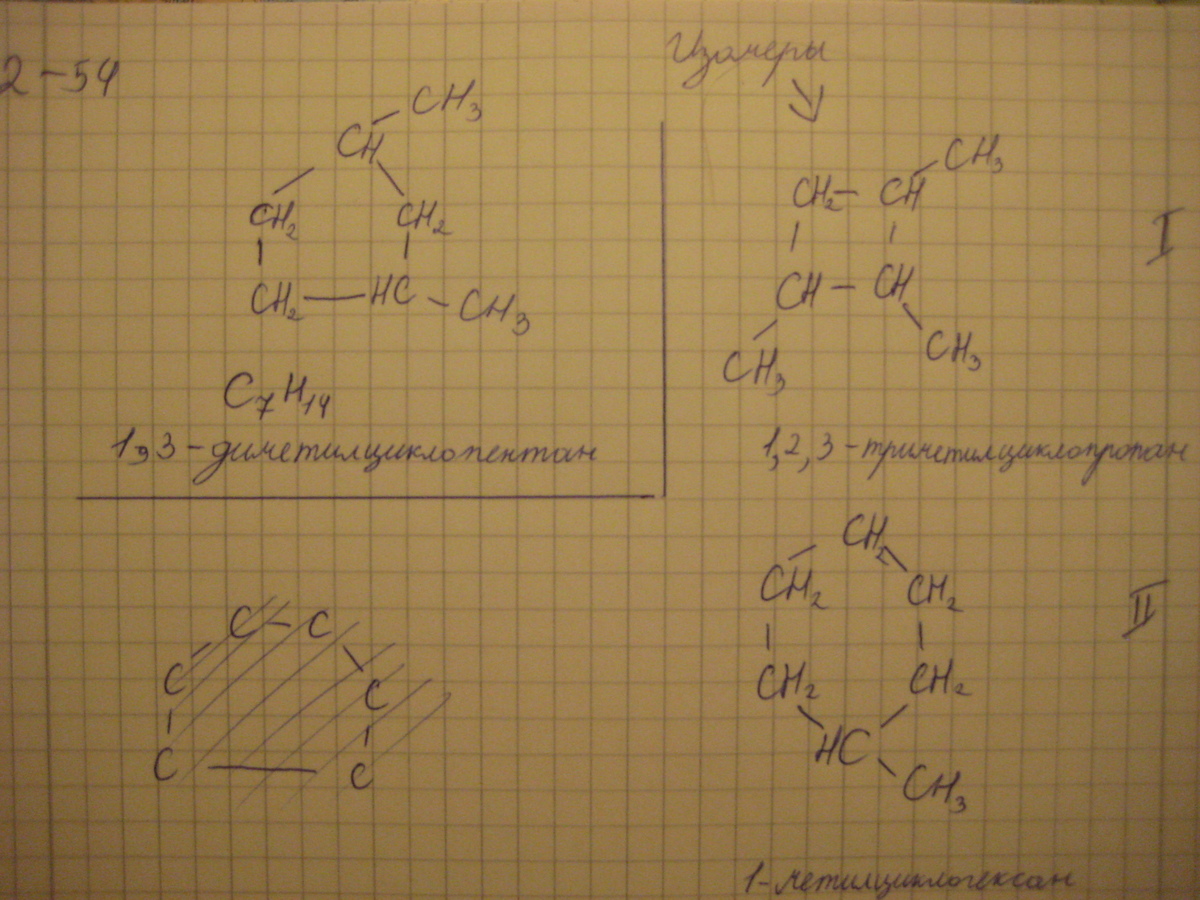 2-54
Изомеры
CH3
CH
CH2
CH2
CH2 — HC - CH3
C7H14
1,3-диметилциклопентан
CH3
CH2 - CH
CH - CH
CH3
CH3
I
1,2,3-триметилциклопропан
CH2
CH2
CH2
CH2
CH2
HC
CH3
II
1-метилциклогексан
C - C
C
C
C — C